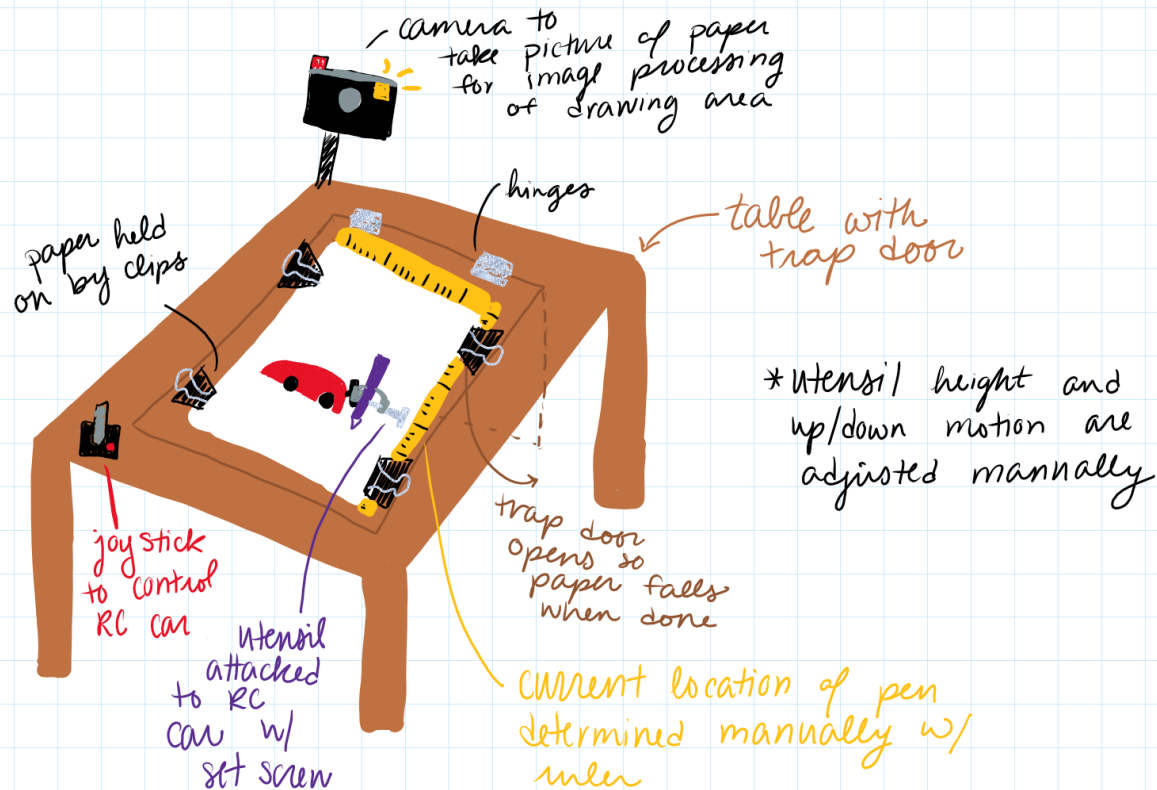 camera to
take picture of paper
for image processing
of drawing area
hinges
table with
trap door
paper held
on by clips
*utensil height and
up/down motion are
adjusted mannally
trap door
opens so
paper falls
when done
joystick
to control
RC car
utensil
attacked
to RC
car w/
set screw
current location of pen
determined manually w/
ruler